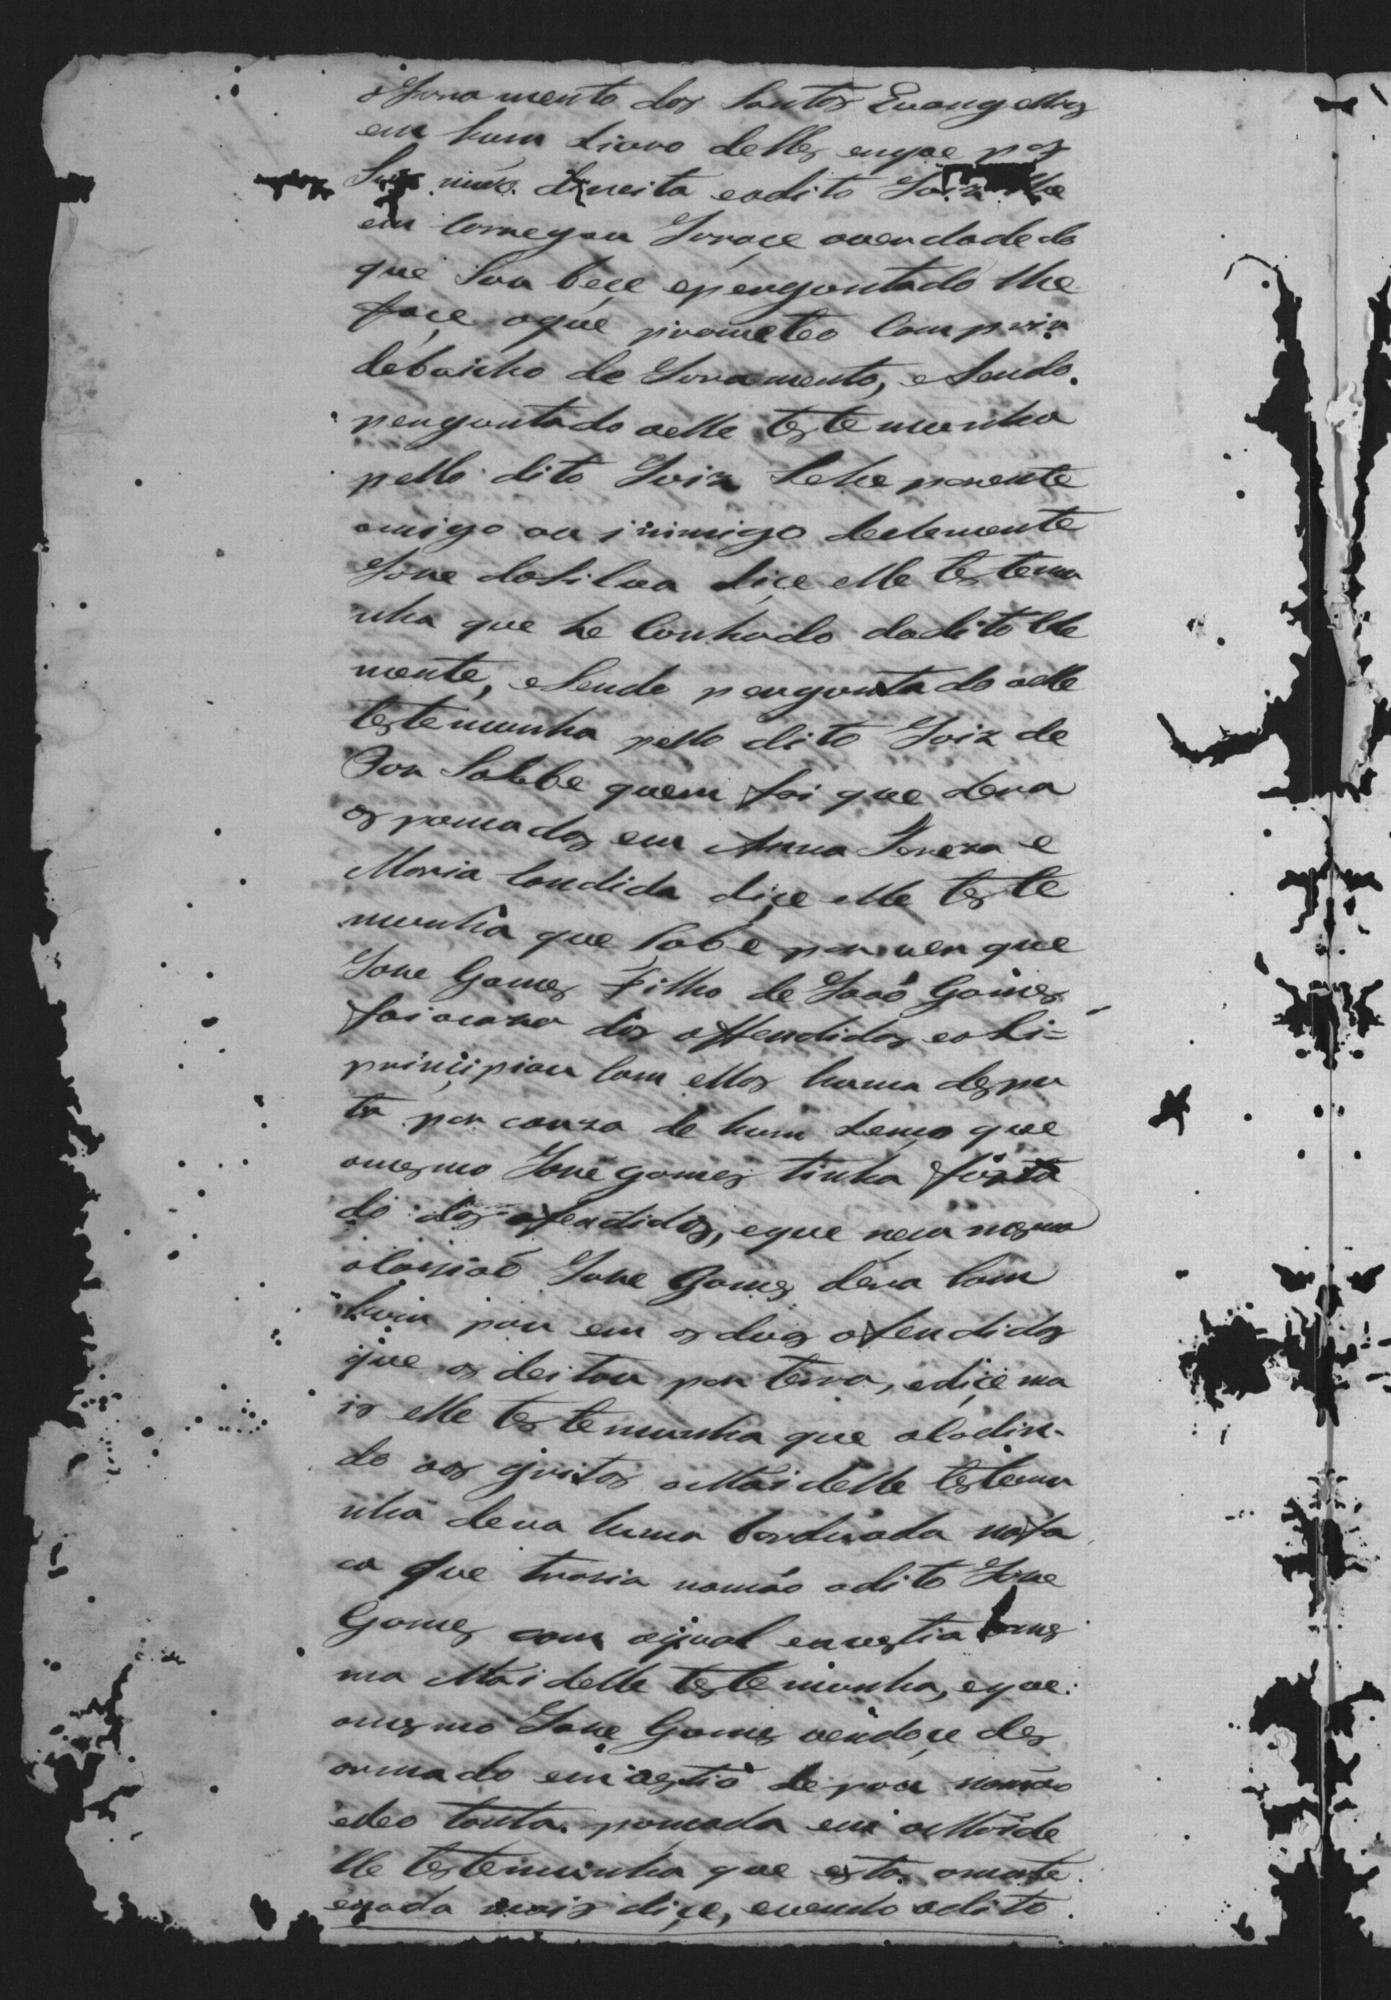 o Juramento dos Santos Evangelhos
em hum Livro delles en que pos
Sua mão direita e o dito Juiz lhe
em carregou Jurace averdade do
que Sou bece eperguntado lhe
foce, oque prometeo Comprir
debaicho do Juramento, eSendo
perguntado aelle testemunha
pello dito Juiz Sehe parente
amigo ou inimigo declemente
Joze daSilva diçe elle testemu
nha que he Cunhado dodito Cle
mente, eSendo perguntado aelle
testemunha pello dito Juiz de
Sabbe quem foi que dera
as pancadas em Anna Tereza e
Maria Candida diçe elle teste
munha que Sabe por ver que
Joze Gomes Filho de Joaõ Gomes
foi acaza dos offendidos eahi=
prinçipiou Com ellas huma despu
ta por cauza de hum Lenço que
omesmo Joze gomes tinha furta
do dos ofendidos, eque nesa mesma
ocasiaõ Joze Gomes dera Com
hum pau em as duas ofendidas
que as deitou por terra, ediçe ma
is elle testemunha que acodin-
do aos gritos aMai delle testemu
nha dera huma bordoada nafa
ca que trasia namão odito Joze
Gomes com aqual envestia ames
ma Mai delle testemunha, eque
omesmo Joze Gomes vendoçe des
armado envestio de pau namão
edeo tanta pancada em aMai de
lle testemunha que esta amorte
enada mais diçe, evendo odito